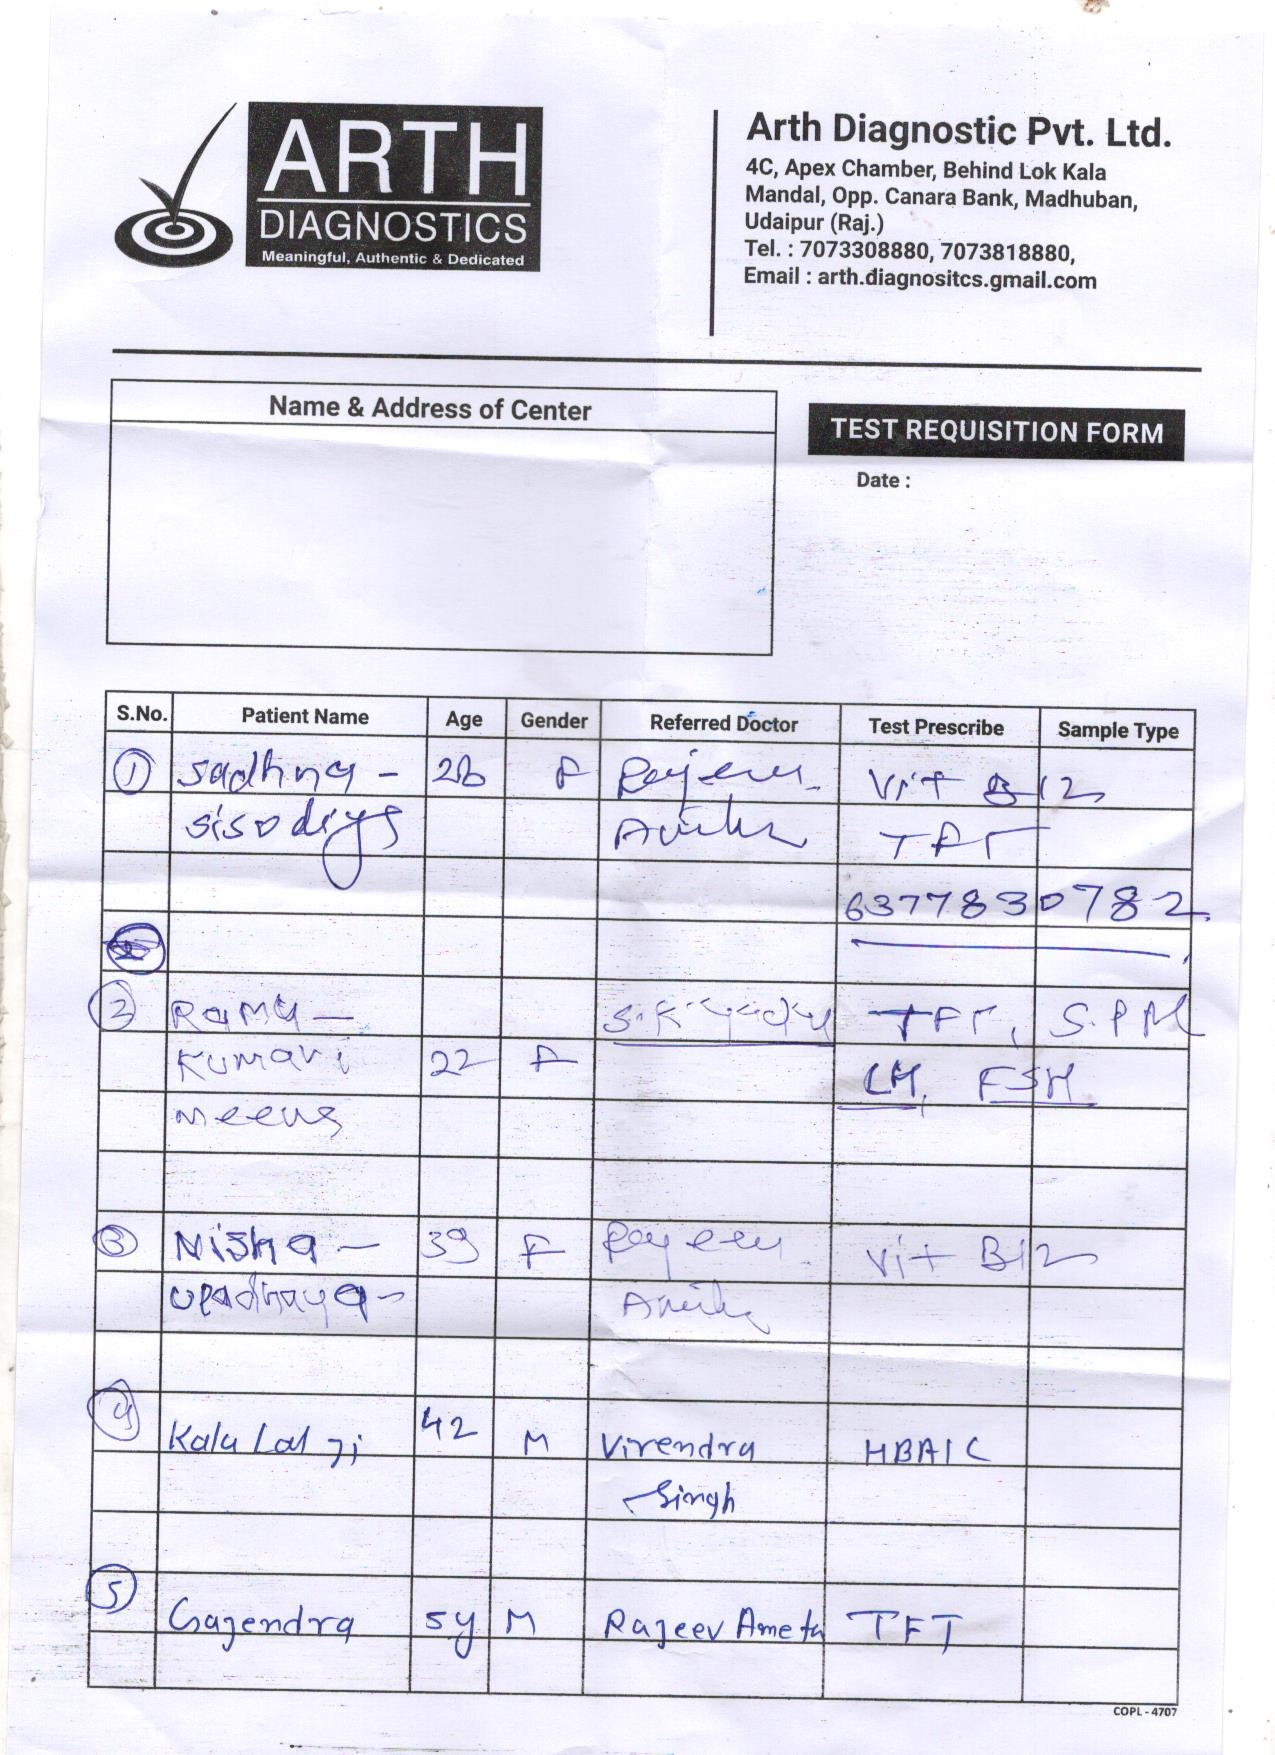 ARTH
DIAGNOSTICS
Meaningful, Authentic & Dedicated
Arth Diagnostic Pvt. Ltd.
4C, Apex Chamber, Behind Lok Kala
Mandal, Opp. Canara Bank, Madhuban,
Udaipur (Raj.)
Tel. : 7073308880, 7073818880,
Email : arth.diagnositcs.gmail.com
Name & Address of Center
TEST REQUISITION FORM
Date :
S.No. Patient Name Age Gender Referred Doctor Test Prescribe Sample Type
1 Sadhna - F Vit B12
Sisodiya TFT
6377830782
2 Rama - S.K TFT,
Kumari 22 F LH, FSH
meena
3 Nisha - 39 F Vit B12
Upadhaya -
4 Kalu Lal Ji 42 M Virendra HBA1C
Singh
5 Gajendra M Rajeev Ameta TFT
COPL - 4707